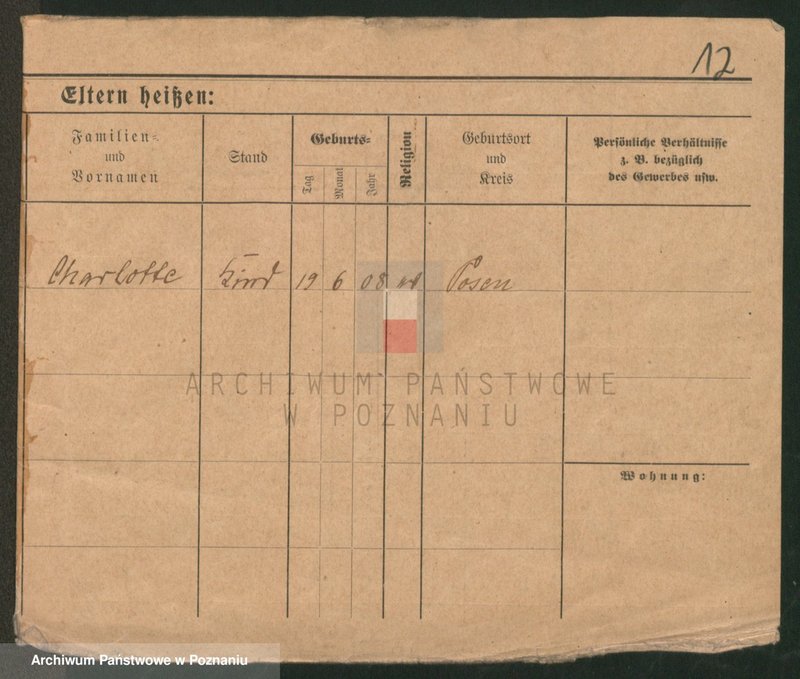 12
Eltern heißen:
Familien-
und
Vornamen
Stand
Geburts-
Tag
Monat
Jahr
Religion
Geburtsort
und
Kreis
Persönliche Verhältnisse
z. B. bezüglich
des Gewerbes usw.
Charlotte Kind 19 6 08 Posen
ARCHIWUM PAŃSTWOWE
W POZNANIU
Wohnung:
Archiwum Państwowe w Poznaniu